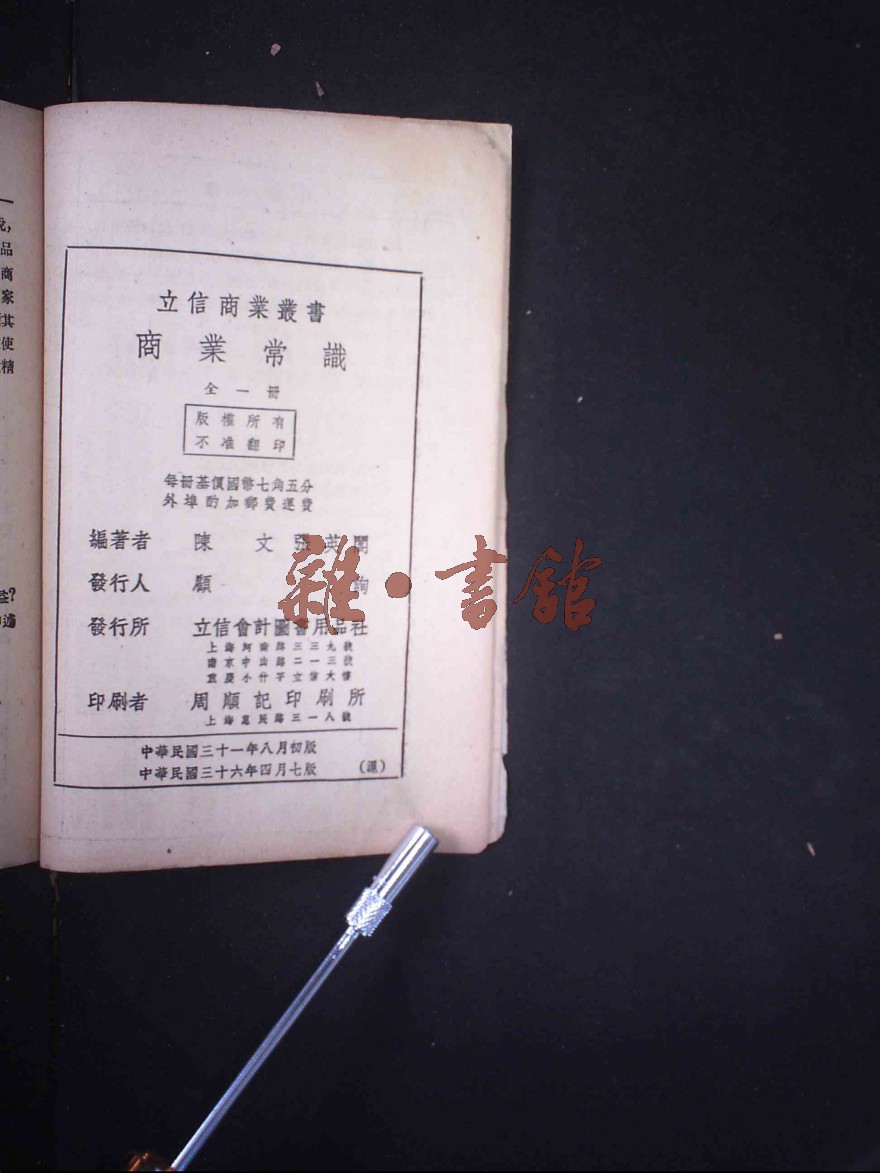 立信商業叢書
商業常識
全一冊
版權所有
不准翻印
每冊基價國幣七角五分
外埠酌加郵費運費
編著者 陳文 張英閣
發行人 顧 詢
發行所 立信會計圖書用品社
上海河南路三三九號
南京中山路二一三號
重慶小什字立信大樓
印刷者 周順記印刷所
上海惠民路三一八號
中華民國三十一年八月初版
中華民國三十六年四月七版 (滬)
雜·書館
品
商
家
其
使
精